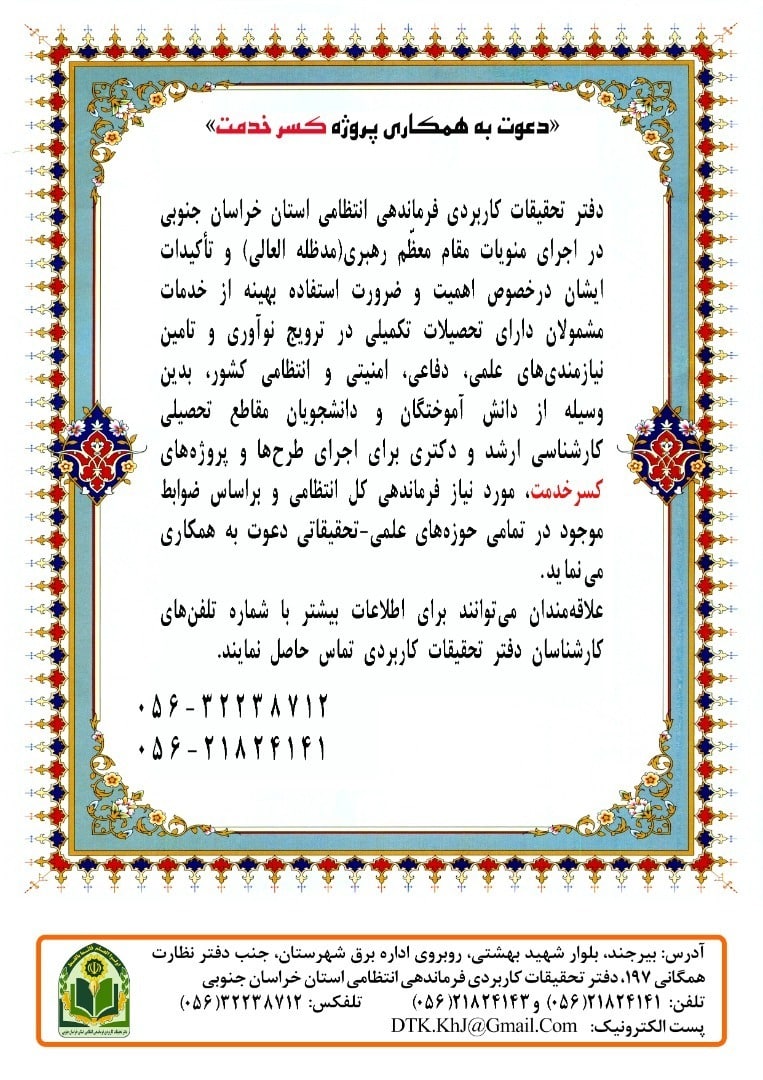 «دعوت به همکاری پروژه کسر خدمت»
دفتر تحقیقات کاربردی فرماندهی انتظامی استان خراسان جنوبی
در اجرای منویات مقام معظّم رهبری(مدظله العالی) و تأکیدات
ایشان درخصوص اهمیت و ضرورت استفاده بهینه از خدمات
مشمولان دارای تحصیلات تکمیلی در ترویج نوآوری و تامین
نیازمندی‌های علمی، دفاعی، امنیتی و انتظامی کشور، بدین
وسیله از دانش آموختگان و دانشجویان مقاطع تحصیلی
کارشناسی ارشد و دکتری برای اجرای طرح‌ها و پروژه‌های
کسرخدمت، مورد نیاز فرماندهی کل انتظامی و براساس ضوابط
موجود در تمامی حوزه‌های علمی-تحقیقاتی دعوت به همکاری
می‌نماید.
علاقه‌مندان می‌توانند برای اطلاعات بیشتر با شماره تلفن‌های
کارشناسان دفتر تحقیقات کاربردی تماس حاصل نمایند.
۰۵۶-۳۲۲۳۸۷۱۲
۰۵۶-۲۱۸۲۴۱۴۱
آدرس: بیرجند، بلوار شهید بهشتی، روبروی اداره برق شهرستان، جنب دفتر نظارت
همگانی ۱۹۷، دفتر تحقیقات کاربردی فرماندهی انتظامی استان خراسان جنوبی
تلفن: ۲۱۸۲۴۱۴۱(۰۵۶) و ۲۱۸۲۴۱۴۳(۰۵۶) تلفکس: ۳۲۲۳۸۷۱۲(۰۵۶)
پست الکترونیک: DTK.KhJ@Gmail.Com